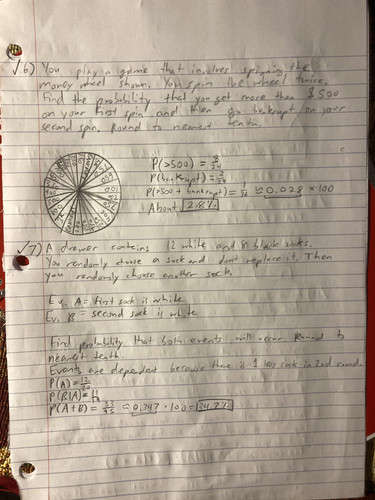 √6) You play a game that involves spinning the
money wheel shown. You spin the wheel twice.
Find the probability that you get more than $500
on your first spin and then go bankrupt on your
second spin. Round to nearest tenth.
P(>500) = 8/24
P(bankrupt) = 2/24
P(>500 + bankrupt) = 1/36 ≈ 0.028 × 100
About 2.8%
√7) A drawer contains 12 white and 8 black socks.
You randomly choose a sock and don't replace it. Then
you randomly choose another sock.
Ev. A = First sock is white
Ev. B = second sock is white
Find probability that both events will occur. Round to
nearest tenth.
Events are dependent because there is 1 less sock in 2nd round.
P(A) = 12/20
P(B|A) = 11/19
P(A+B) = 33/95 ≈ 0.347 · 100 = 34.7%